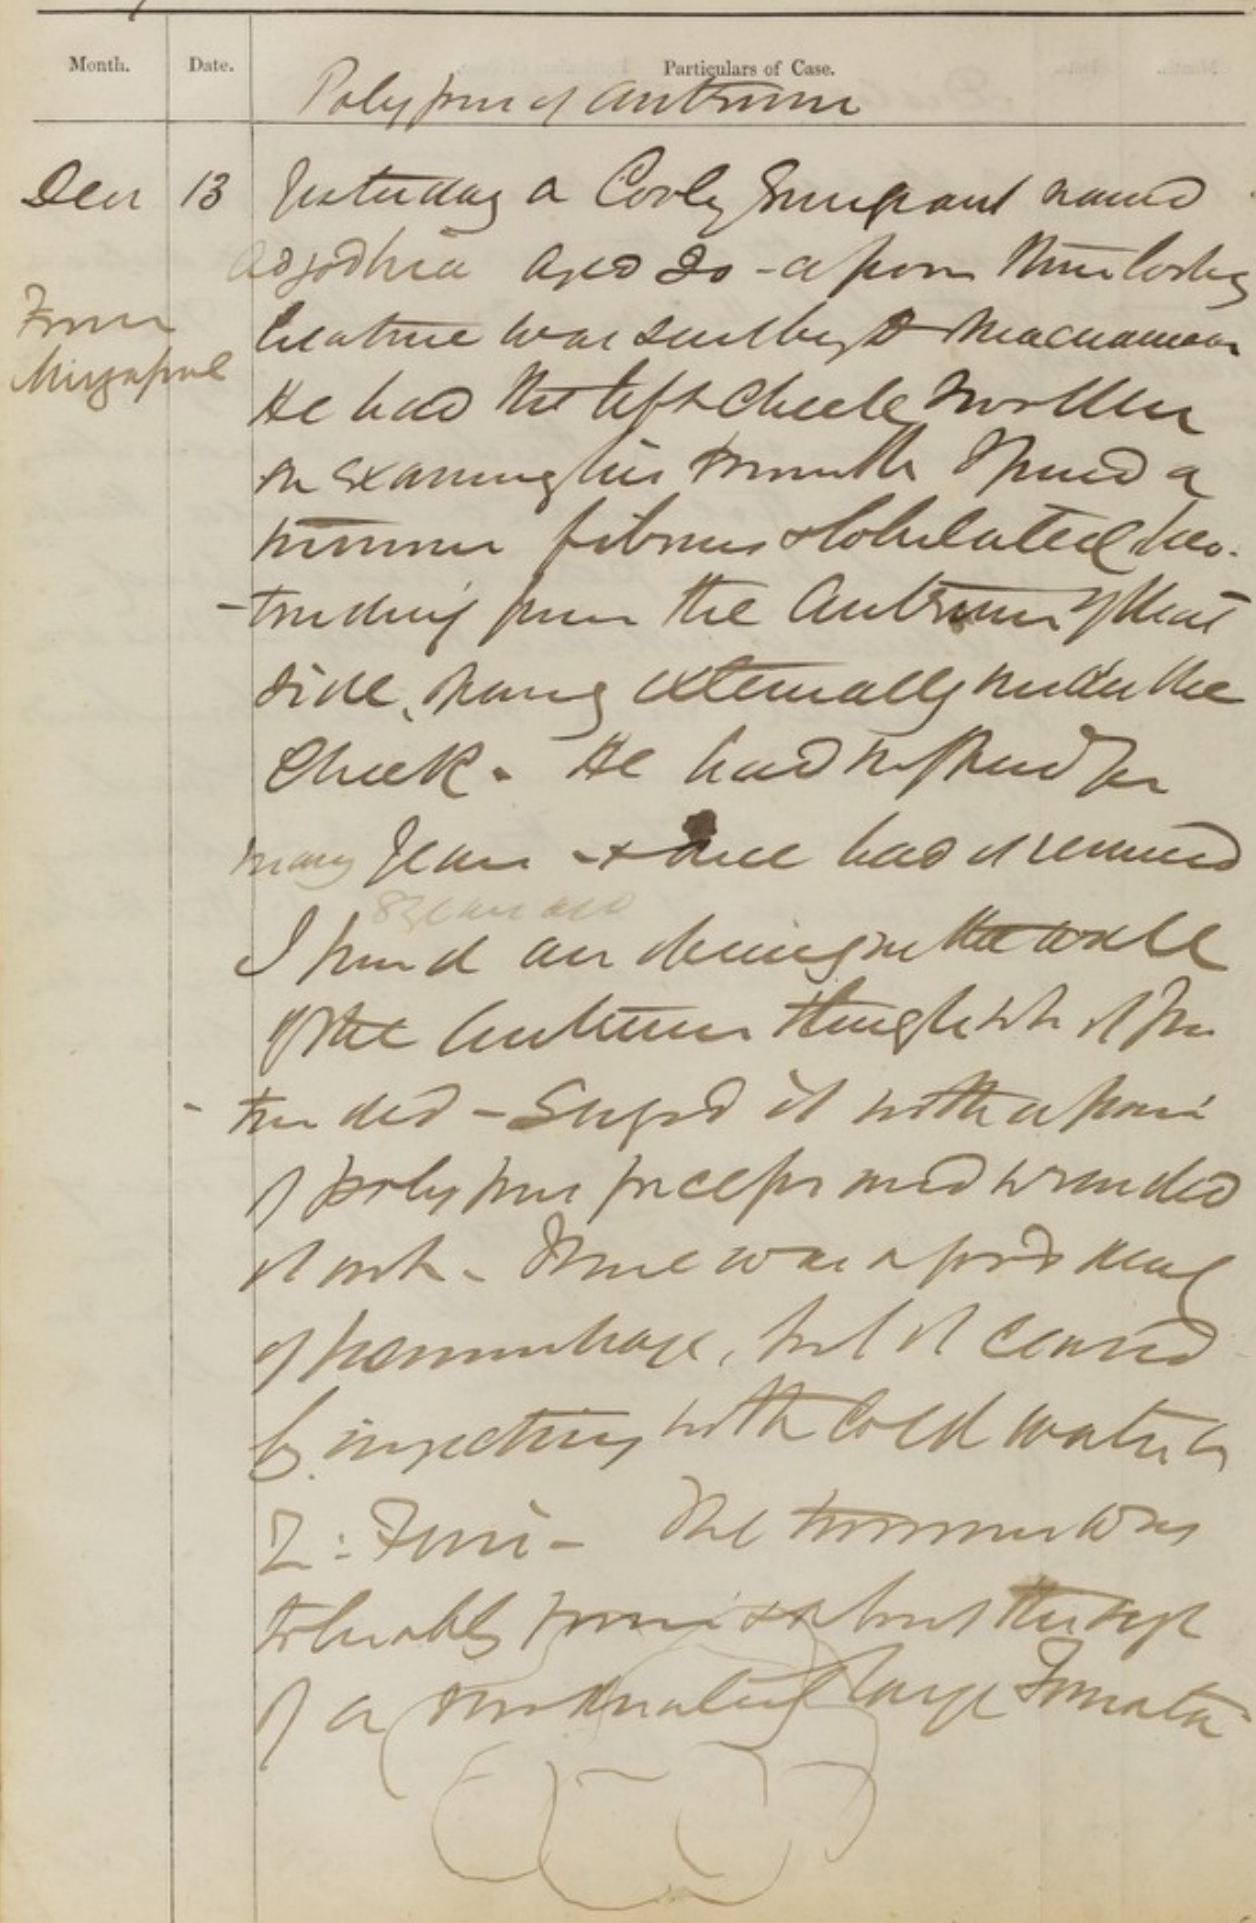 Month. Date. Particulars of Case.
Polypus of Antrum
Decr 13 Yesterday a Cooly Emigrant named
Adjodhia aged 20 - a poor thin looking
From
creature was sent by Dr Macnamara
Mirzapore
He had the left cheek swollen
on examing his mouth I found a
tumour fibrous & lobulated pro-
-truding from the Antrum of that
side, hang externally under the
Cheek. He had suffered for
many years - & once had it removed
8 years ago
I found an opening in the wall
of the Antrum through wh it pro
-truded - Seized it with a pair
of polypus forceps and wrenched
it out. There was a good deal
of hemorrhage, but it ceased
by injecting with cold water &
T: Ferri - The tumour was
tolerably firm & about the size
of a moderately large Tomata